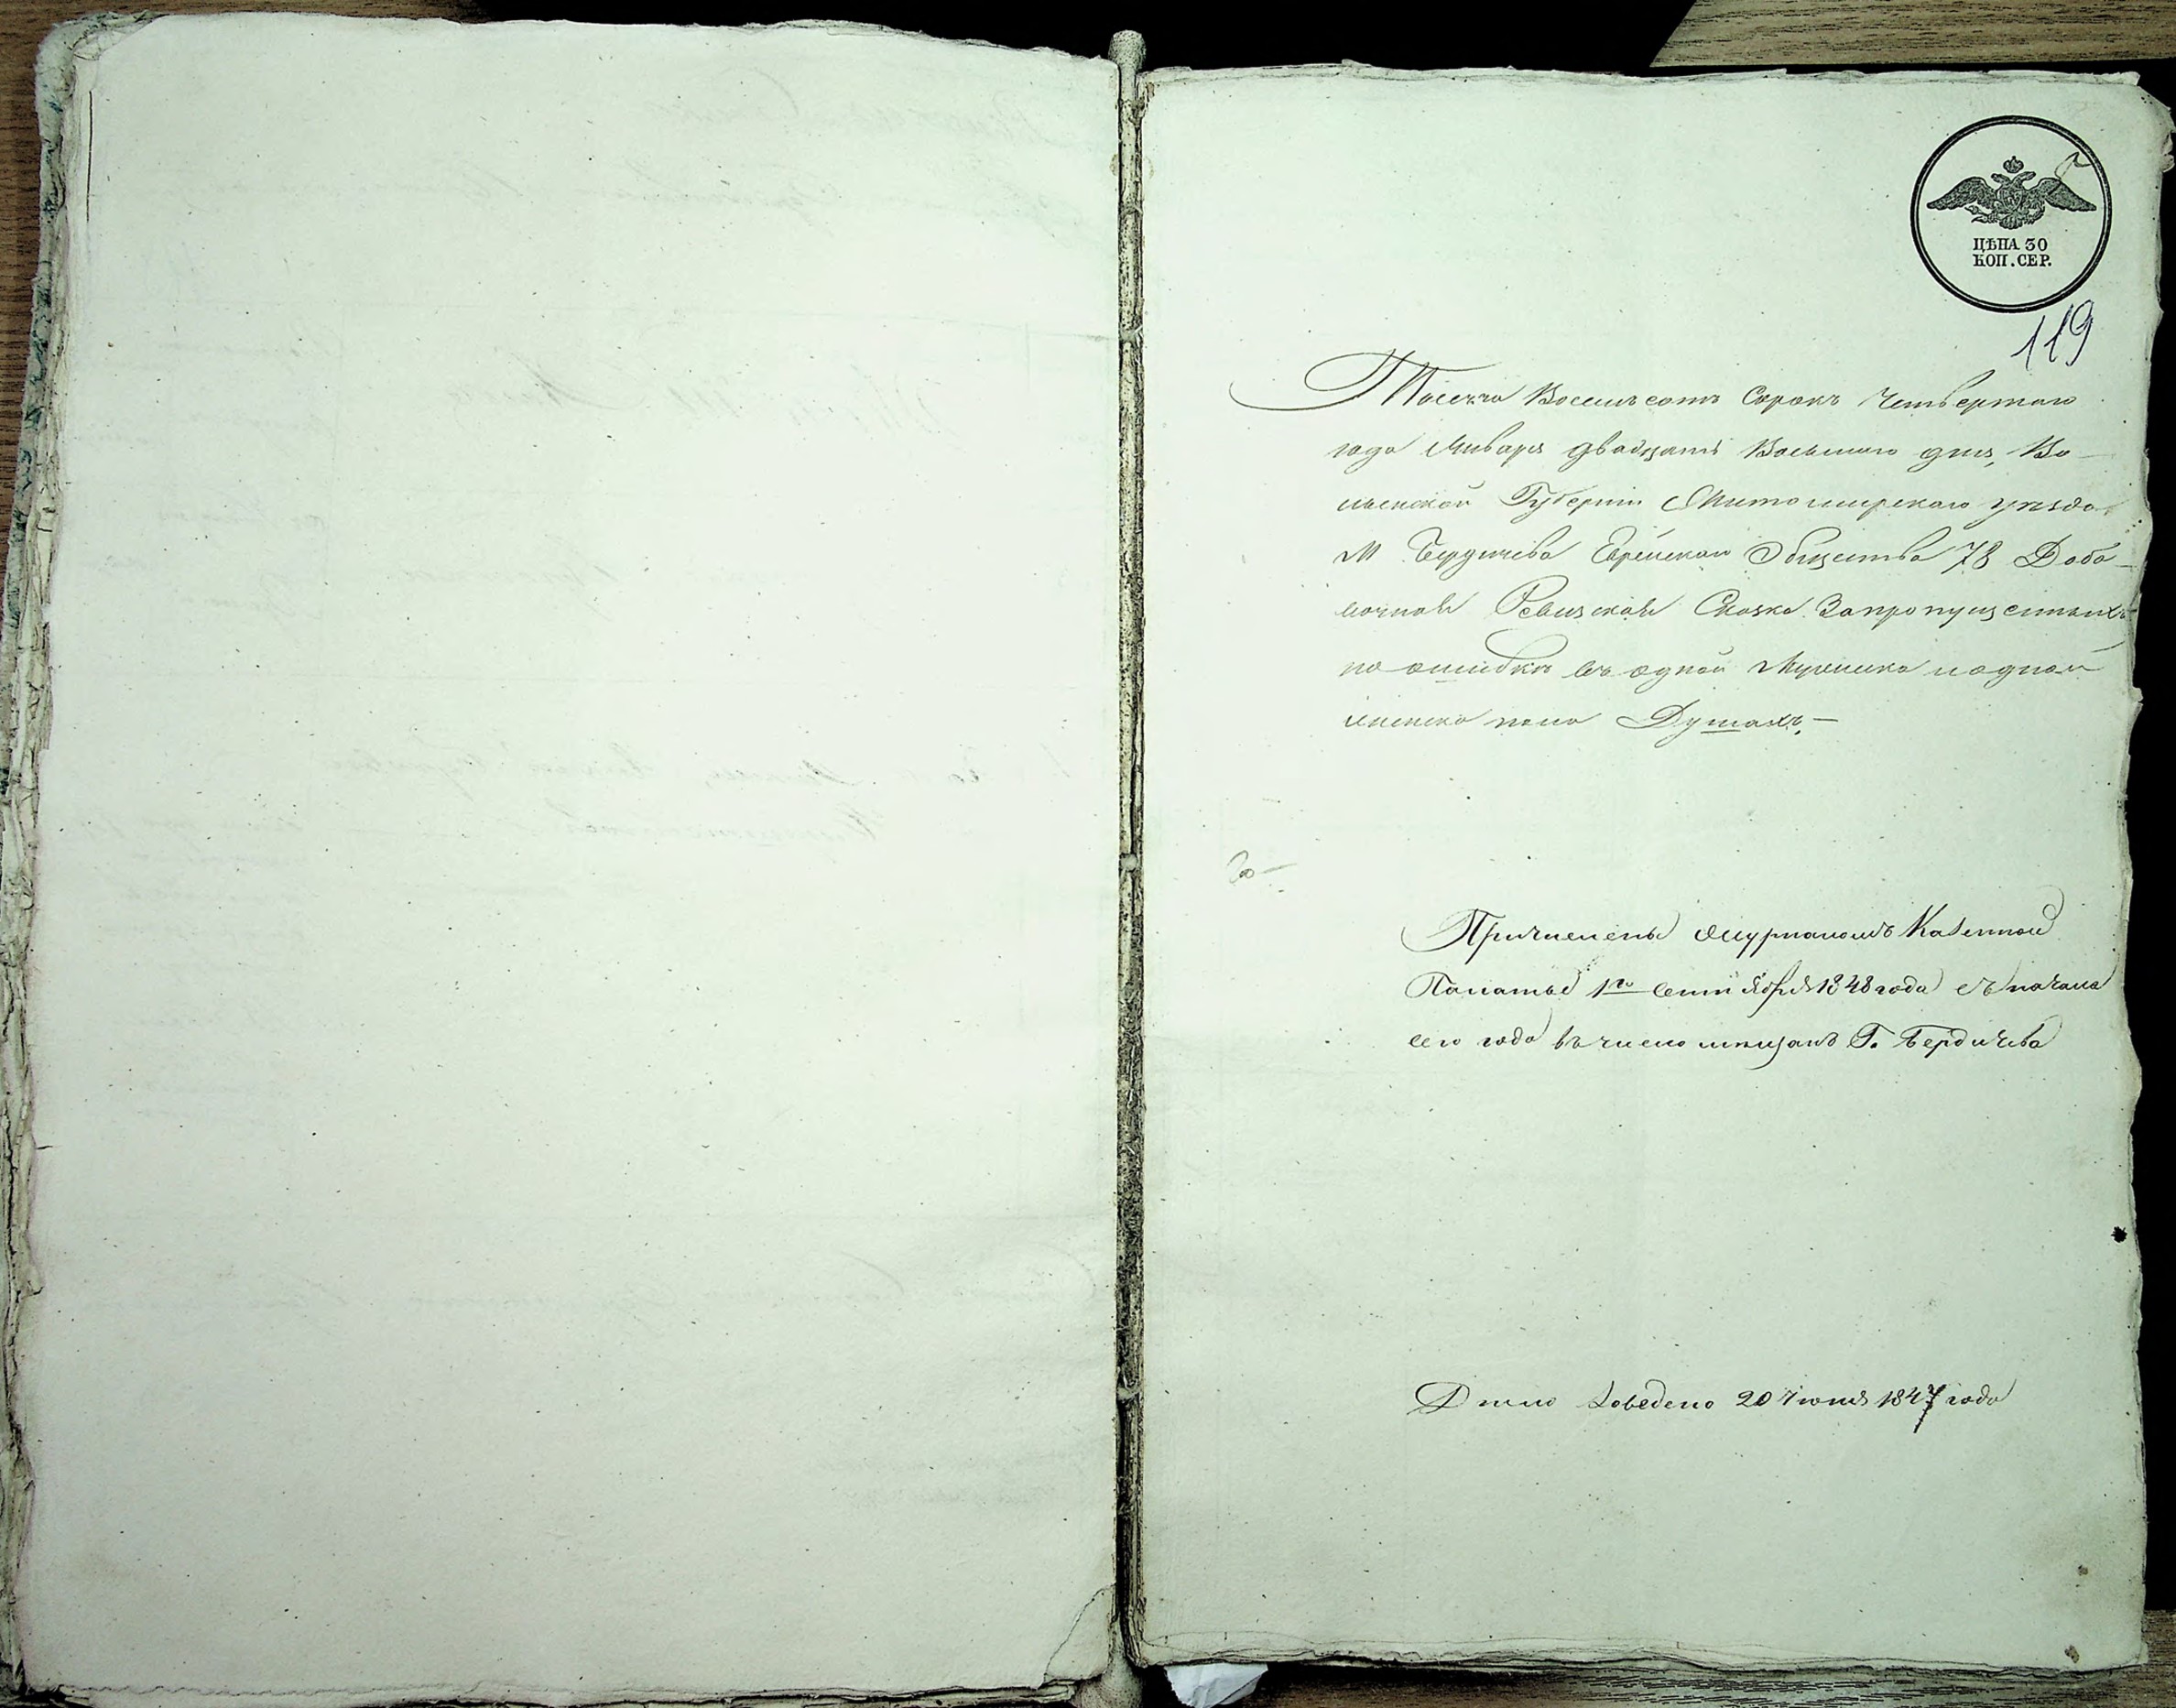 ЦѢНА 30
КОП. СЕР.
119
Тысяча Восемьсотъ Сорокъ Четвертаго
года Января двадцать Восьмаго дня, Во-
лынской Губерніи Житомирскаго уѣзда
М Бердичева Еврейскаго Общества 78 Доба-
вочная Ревизская Сказка Запропущенныхъ
по ошибкѣ въ одной Мужеска и одной
женска пола Душахъ.—
Причислены журналомъ Казенной
Палаты 1го сентября 1848 года съ начала
сего года въ число мѣщанъ Г. Бердичева
Дѣло 20 Іюня 1847 года